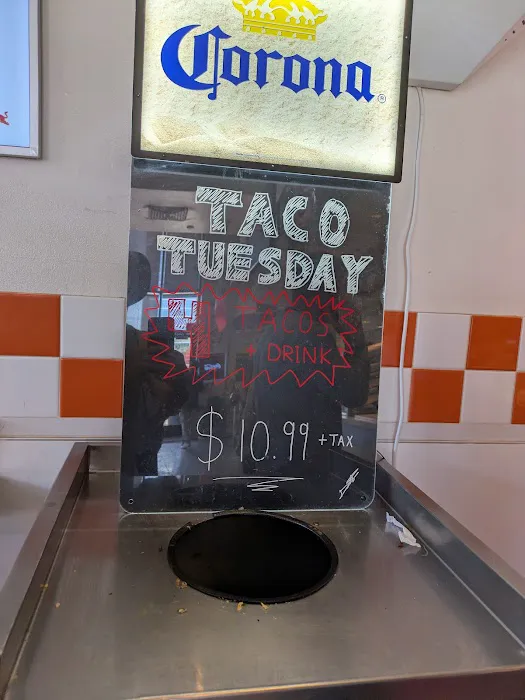 Corona®
TACO
TUESDAY
4 TACOS
+ DRINK
$10.99 +TAX